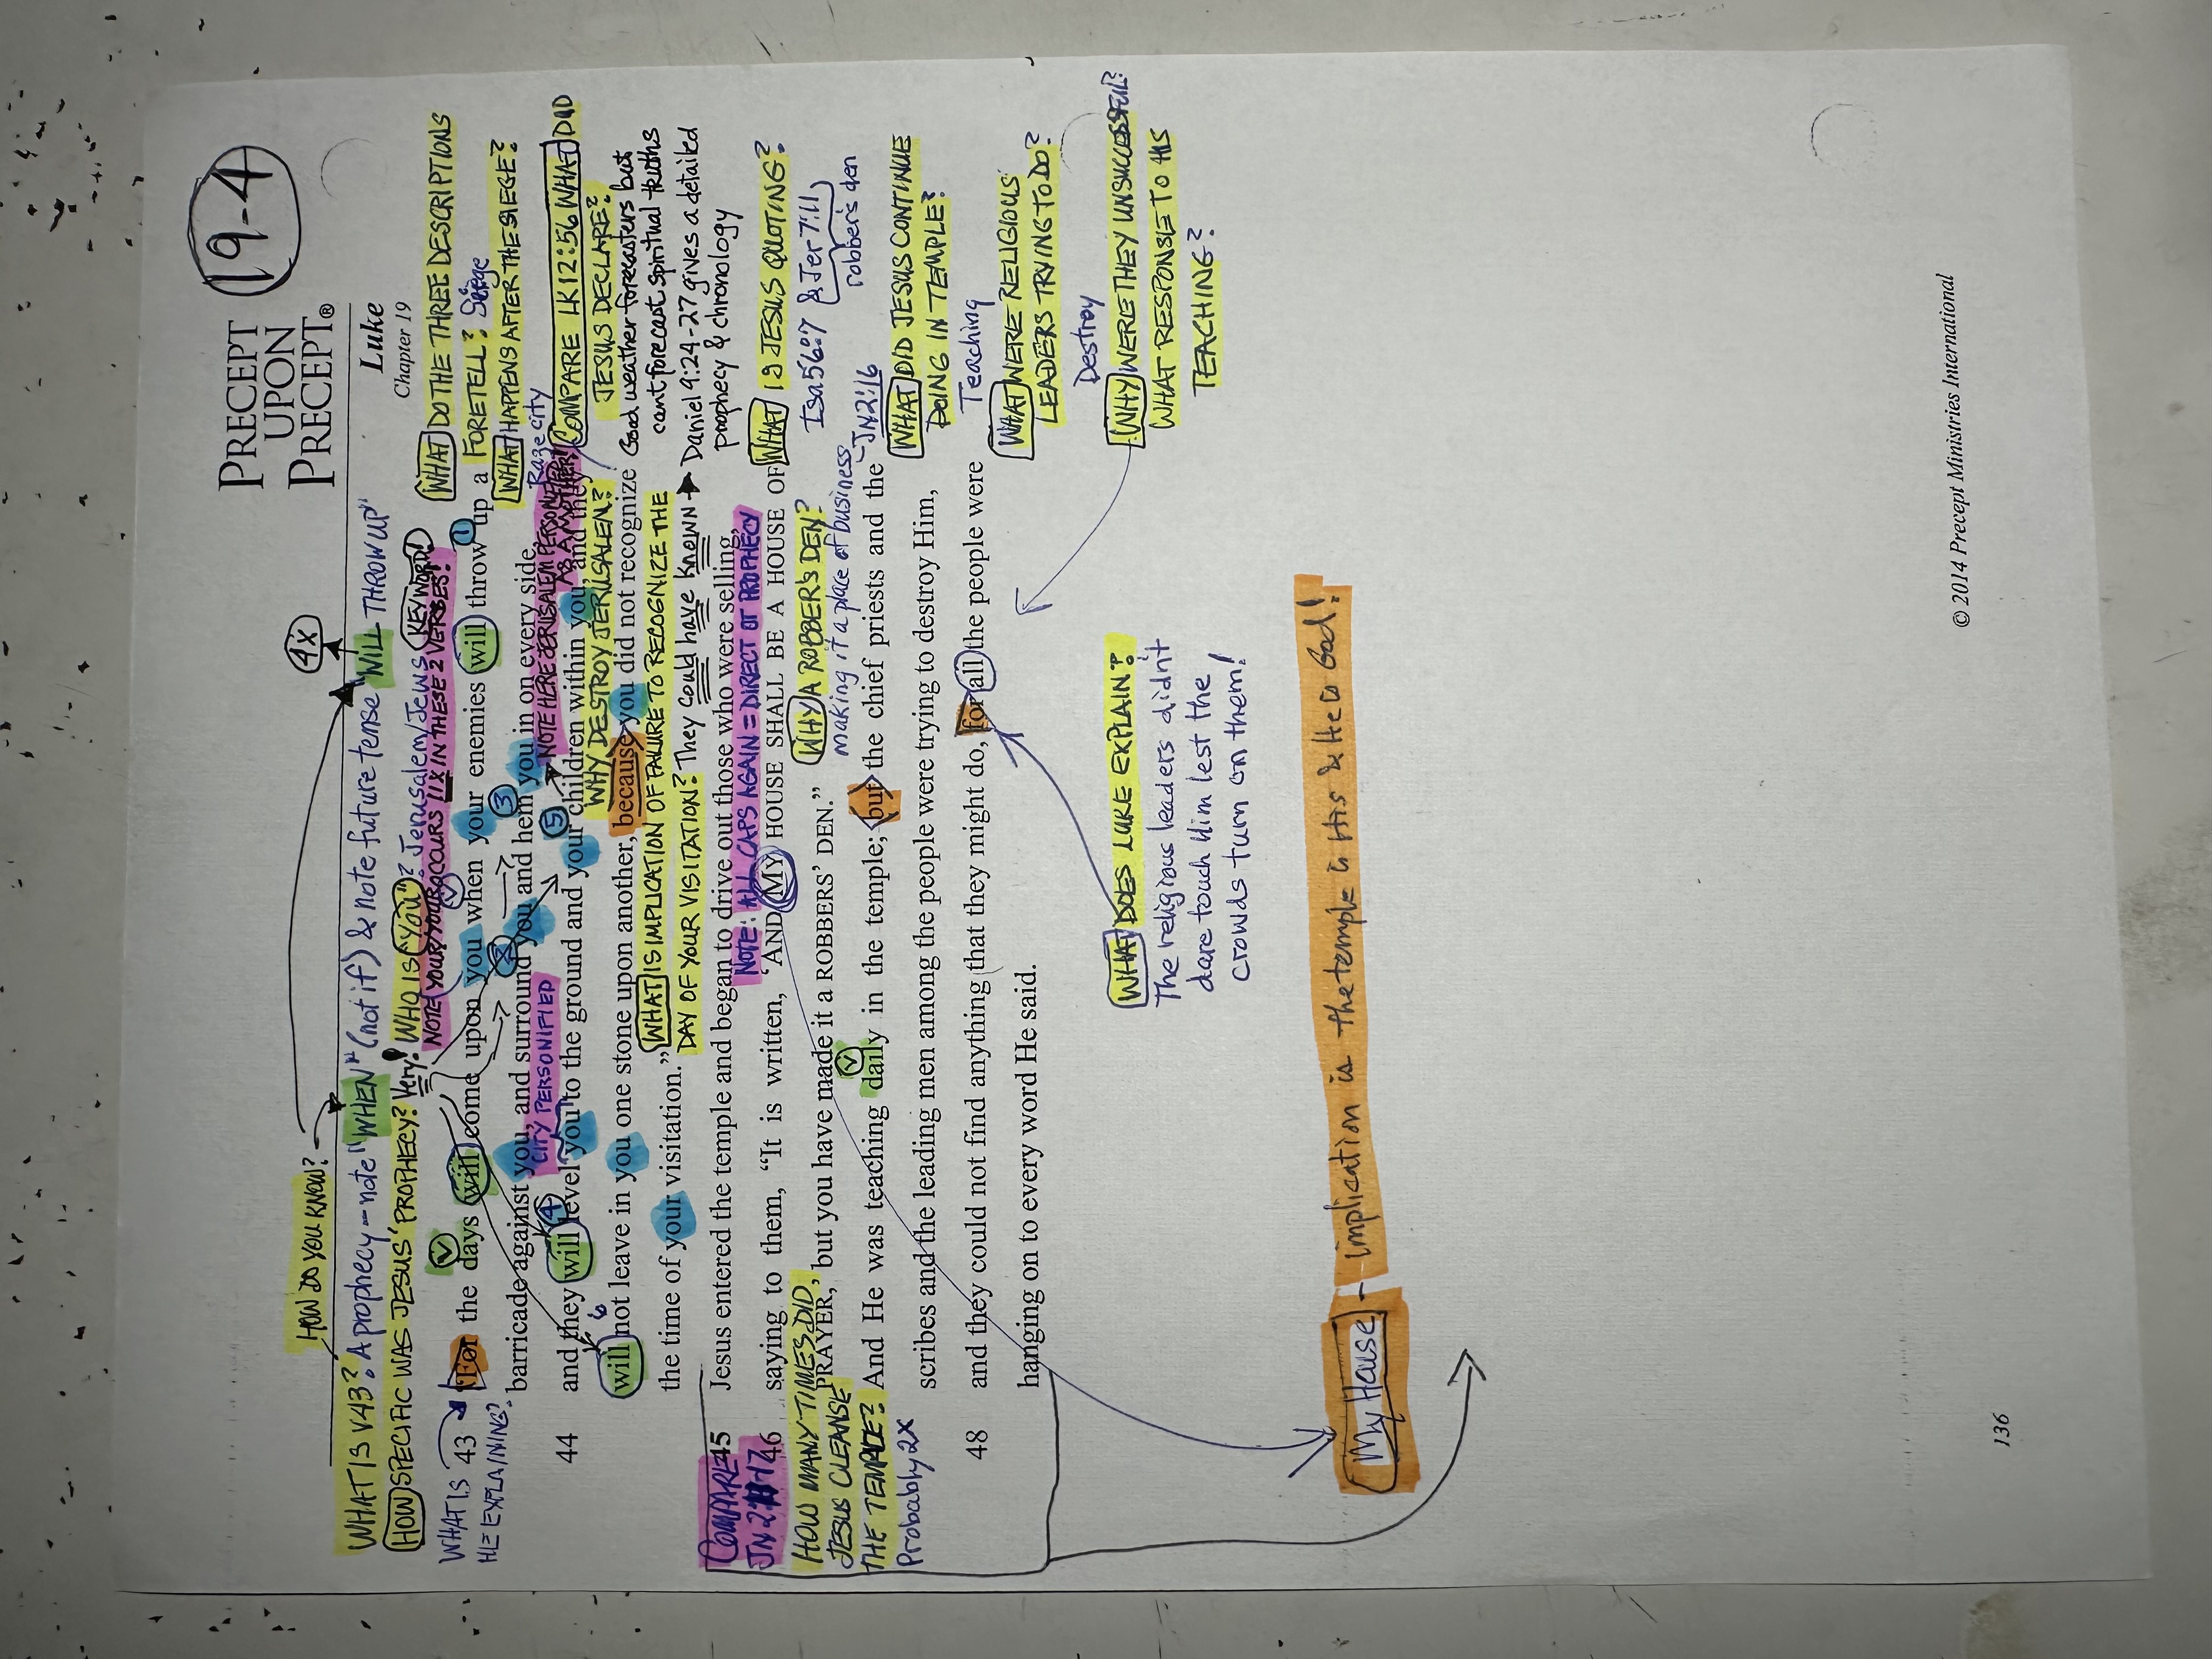 19-4
PRECEPT
UPON
PRECEPT®
Luke
Chapter 19
4X
HOW DO YOU KNOW?
WHAT IS V43? A prophecy - note "WHEN" (not if) & note future tense "WILL THROW UP"
HOW SPECIFIC WAS JESUS' PROPHECY? Very! WHO IS "YOU"? Jerusalem/Jews KEYWORD!
NOTE YOU/YOUR OCCURS 11X IN THESE 2 VERSES!
WHAT IS
HE EXPLAINING?
43 "For the days will come upon you when your enemies will throw up a
barricade against you, and surround you and hem you in on every side,
CITY PERSONIFIED
NOTE HERE JERUSALEM PERSONIFIED
AS A MOTHER!
44 and they will level you to the ground and your children within you, and they
WHY DESTROY JERUSALEM?
will not leave in you one stone upon another, because you did not recognize
the time of your visitation."
WHAT IS IMPLICATION OF FAILURE TO RECOGNIZE THE
DAY OF YOUR VISITATION? They could have known → Daniel 9:24-27 gives a detailed
prophecy & chronology
WHAT DO THE THREE DESCRIPTIONS
FORETELL? Siege
WHAT HAPPENS AFTER THE SIEGE?
Raze city
COMPARE LK 12:56 WHAT DID
JESUS DECLARE?
Good weather forecasters but
cant forecast spiritual truths
COMPARE
45 Jesus entered the temple and began to drive out those who were selling,
NOTE: ALL CAPS AGAIN = DIRECT OT PROPHECY
46 saying to them, "It is written, 'AND MY HOUSE SHALL BE A HOUSE OF
PRAYER,' but you have made it a ROBBERS' DEN."
WHY A ROBBERS DEN?
making it a place of business - JN 2:16
WHAT IS JESUS QUOTING?
Isa 56:7 & Jer 7:11
robber's den
HOW MANY TIMES DID
JESUS CLEANSE
THE TEMPLE?
Probably 2X
And He was teaching daily in the temple; but the chief priests and the
scribes and the leading men among the people were trying to destroy Him,
48 and they could not find anything that they might do, for all the people were
hanging on to every word He said.
WHAT DID JESUS CONTINUE
DOING IN TEMPLE?
Teaching
WHAT WERE RELIGIOUS
LEADERS TRYING TO DO?
Destroy
WHY WERE THEY UNSUCCESSFUL?
WHAT RESPONSE TO HIS
TEACHING?
WHAT DOES LUKE EXPLAIN?
The religious leaders didn't
dare touch Him lest the
crowds turn on them!
My House - implication is the temple is His & He is God!
136
© 2014 Precept Ministries International